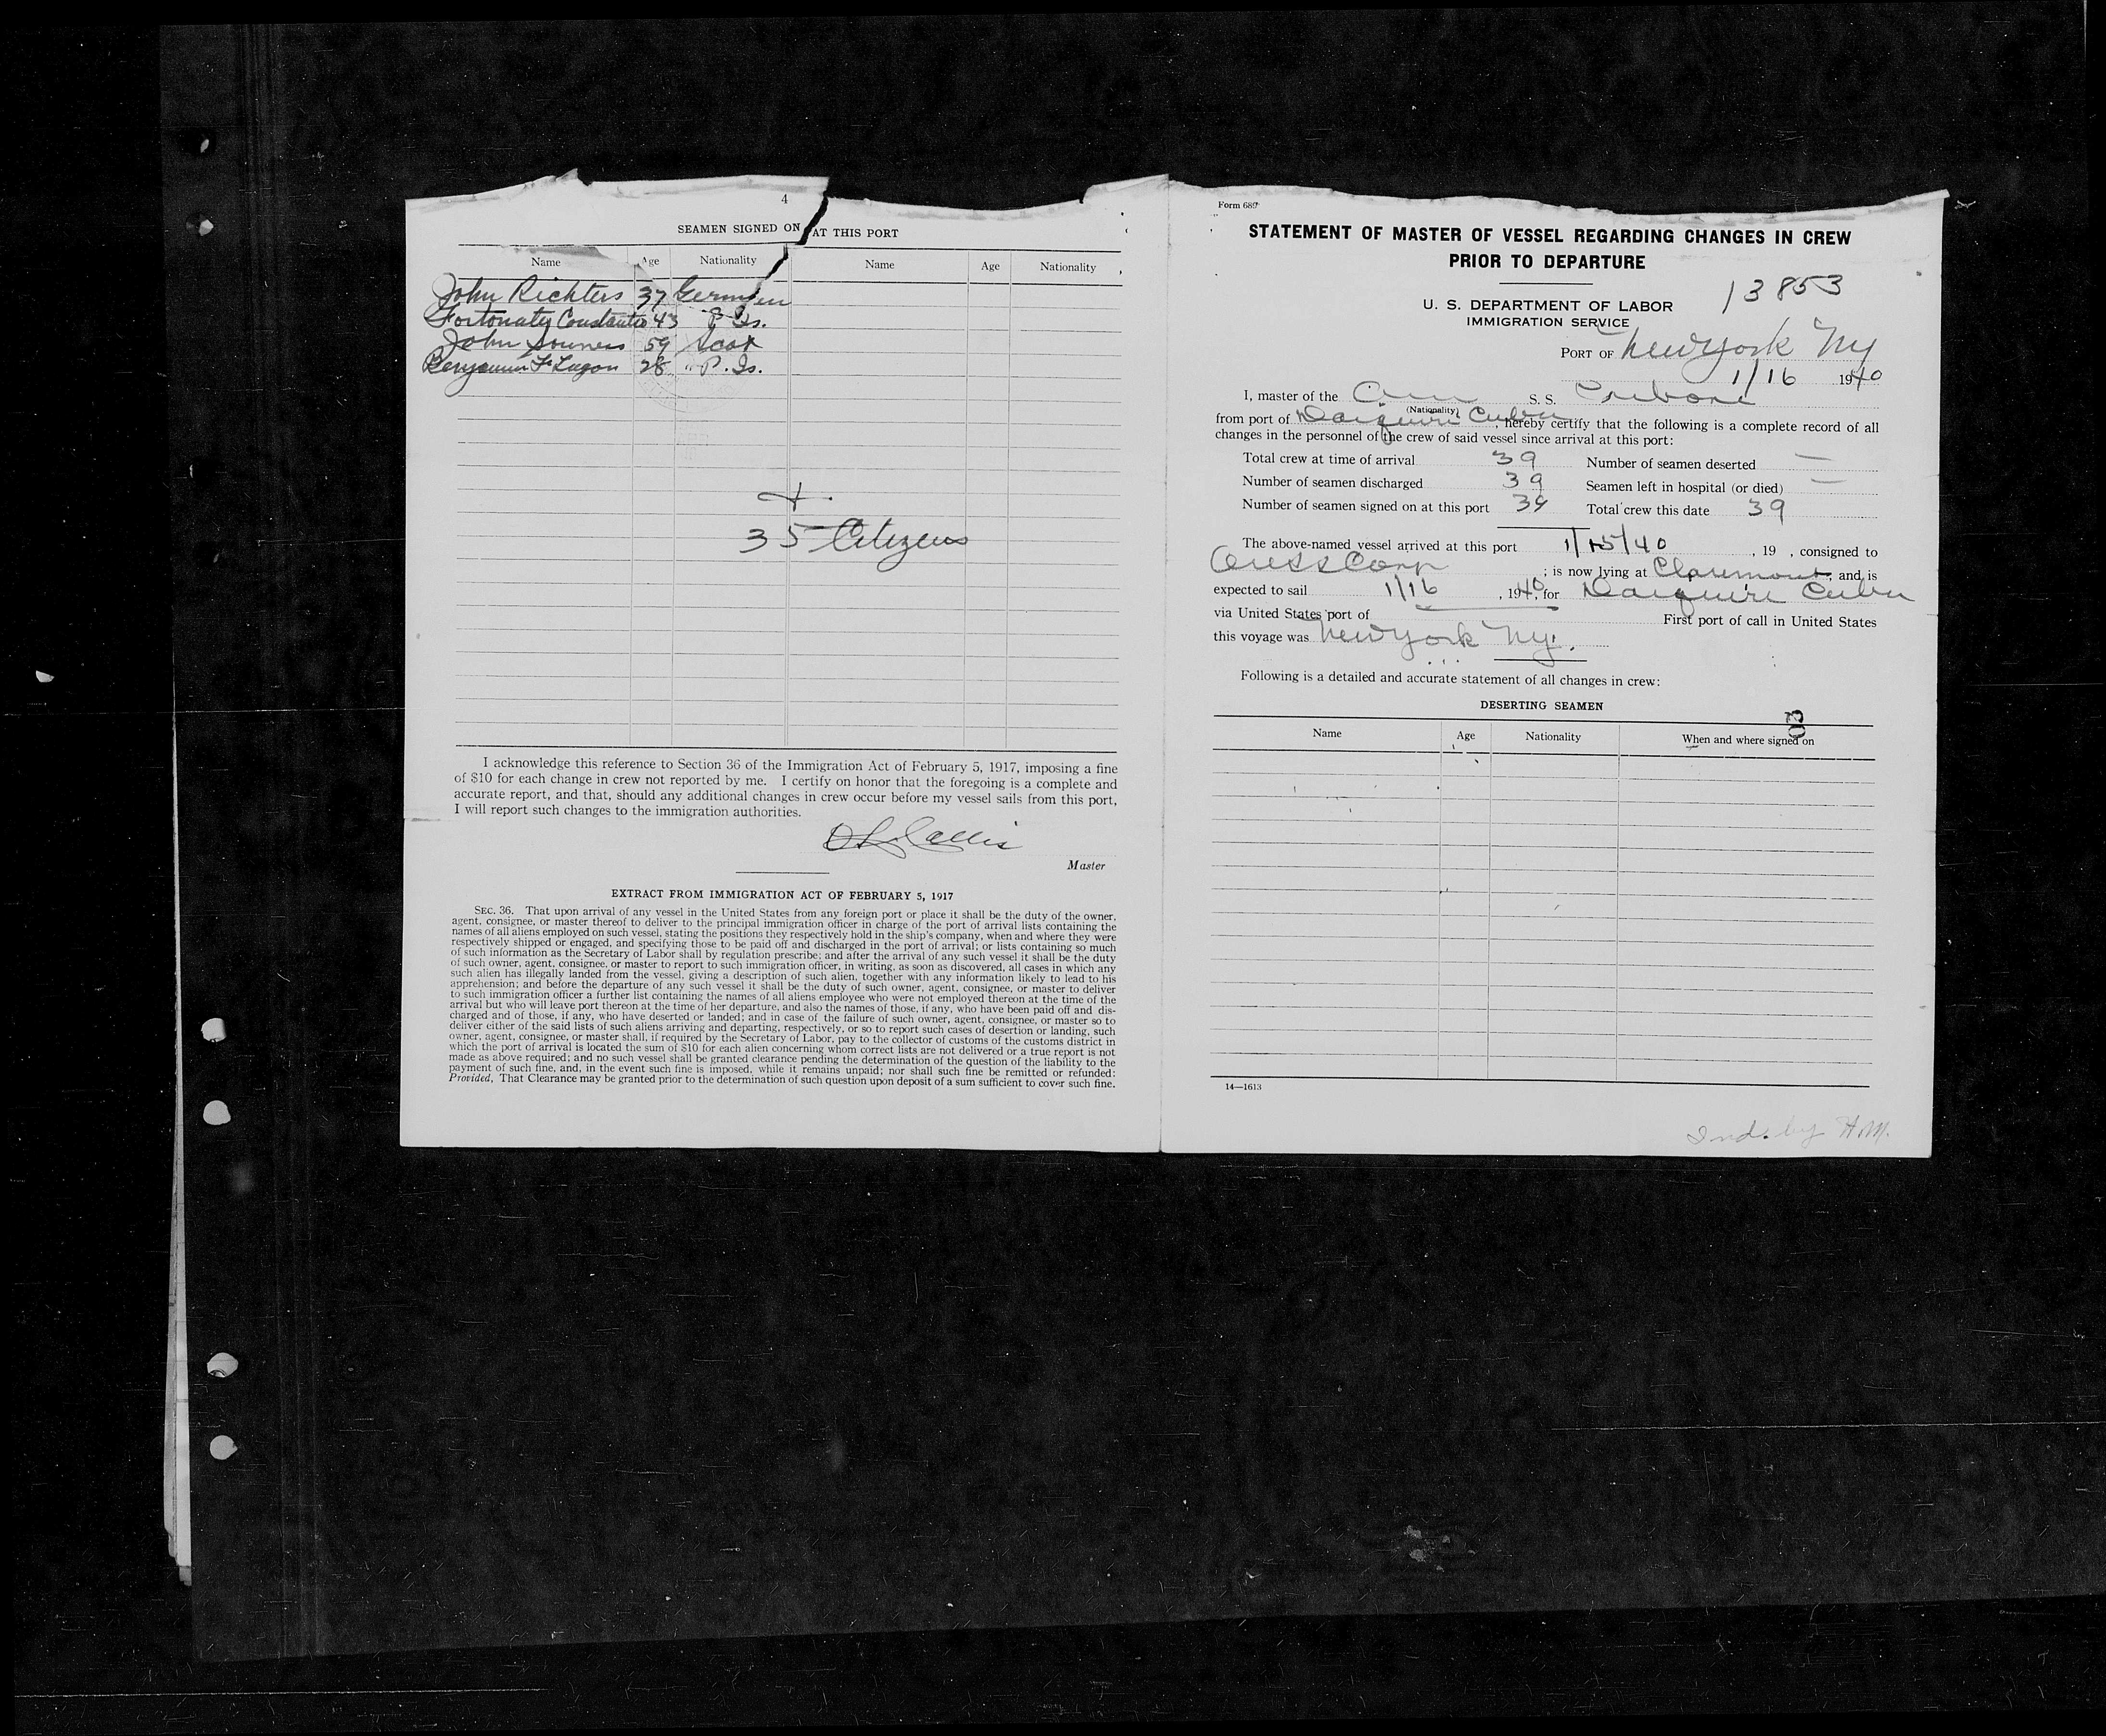 4
SEAMEN SIGNED ON AT THIS PORT
Name Age Nationality Name Age Nationality
John Richters 37 German
Constanta 43 P. Is.
John 59 Scot
Benjamin F. Lugon 28 P. Is.
+
35 Citizens
I acknowledge this reference to Section 36 of the Immigration Act of February 5, 1917, imposing a fine
of $10 for each change in crew not reported by me. I certify on honor that the foregoing is a complete and
accurate report, and that, should any additional changes in crew occur before my vessel sails from this port,
I will report such changes to the immigration authorities.
Master
EXTRACT FROM IMMIGRATION ACT OF FEBRUARY 5, 1917
SEC. 36. That upon arrival of any vessel in the United States from any foreign port or place it shall be the duty of the owner,
agent, consignee, or master thereof to deliver to the principal immigration officer in charge of the port of arrival lists containing the
names of all aliens employed on such vessel, stating the positions they respectively hold in the ship's company, when and where they were
respectively shipped or engaged, and specifying those to be paid off and discharged in the port of arrival; or lists containing so much
of such information as the Secretary of Labor shall by regulation prescribe; and after the arrival of any such vessel it shall be the duty
of such owner, agent, consignee, or master to report to such immigration officer, in writing, as soon as discovered, all cases in which any
such alien has illegally landed from the vessel, giving a description of such alien, together with any information likely to lead to his
apprehension; and before the departure of any such vessel it shall be the duty of such owner, agent, consignee, or master to deliver
to such immigration officer a further list containing the names of all aliens employee who were not employed thereon at the time of the
arrival but who will leave port thereon at the time of her departure, and also the names of those, if any, who have been paid off and dis-
charged and of those, if any, who have deserted or landed; and in case of the failure of such owner, agent, consignee, or master so to
deliver either of the said lists of such aliens arriving and departing, respectively, or so to report such cases of desertion or landing, such
owner, agent, consignee, or master shall, if required by the Secretary of Labor, pay to the collector of customs of the customs district in
which the port of arrival is located the sum of $10 for each alien concerning whom correct lists are not delivered or a true report is not
made as above required; and no such vessel shall be granted clearance pending the determination of the question of the liability to the
payment of such fine, and, in the event such fine is imposed, while it remains unpaid; nor shall such fine be remitted or refunded:
Provided, That Clearance may be granted prior to the determination of such question upon deposit of a sum sufficient to cover such fine.
Form 689
STATEMENT OF MASTER OF VESSEL REGARDING CHANGES IN CREW
PRIOR TO DEPARTURE
13853
U. S. DEPARTMENT OF LABOR
IMMIGRATION SERVICE
PORT OF New York NY
1/16 1940
I, master of the Am S. S.
(Nationality)
from port of Daiquiri Cuba, hereby certify that the following is a complete record of all
changes in the personnel of the crew of said vessel since arrival at this port:
Total crew at time of arrival 39 Number of seamen deserted —
Number of seamen discharged 39 Seamen left in hospital (or died) —
Number of seamen signed on at this port 39 Total crew this date 39
The above-named vessel arrived at this port 1/15/40, 19 , consigned to
Corp ; is now lying at Claremont, and is
expected to sail 1/16, 1940, for Daiquiri Cuba
via United States port of First port of call in United States
this voyage was New York NY.
Following is a detailed and accurate statement of all changes in crew:
DESERTING SEAMEN
20
Name Age Nationality When and where signed on
14—1613
Ind. by H.M.